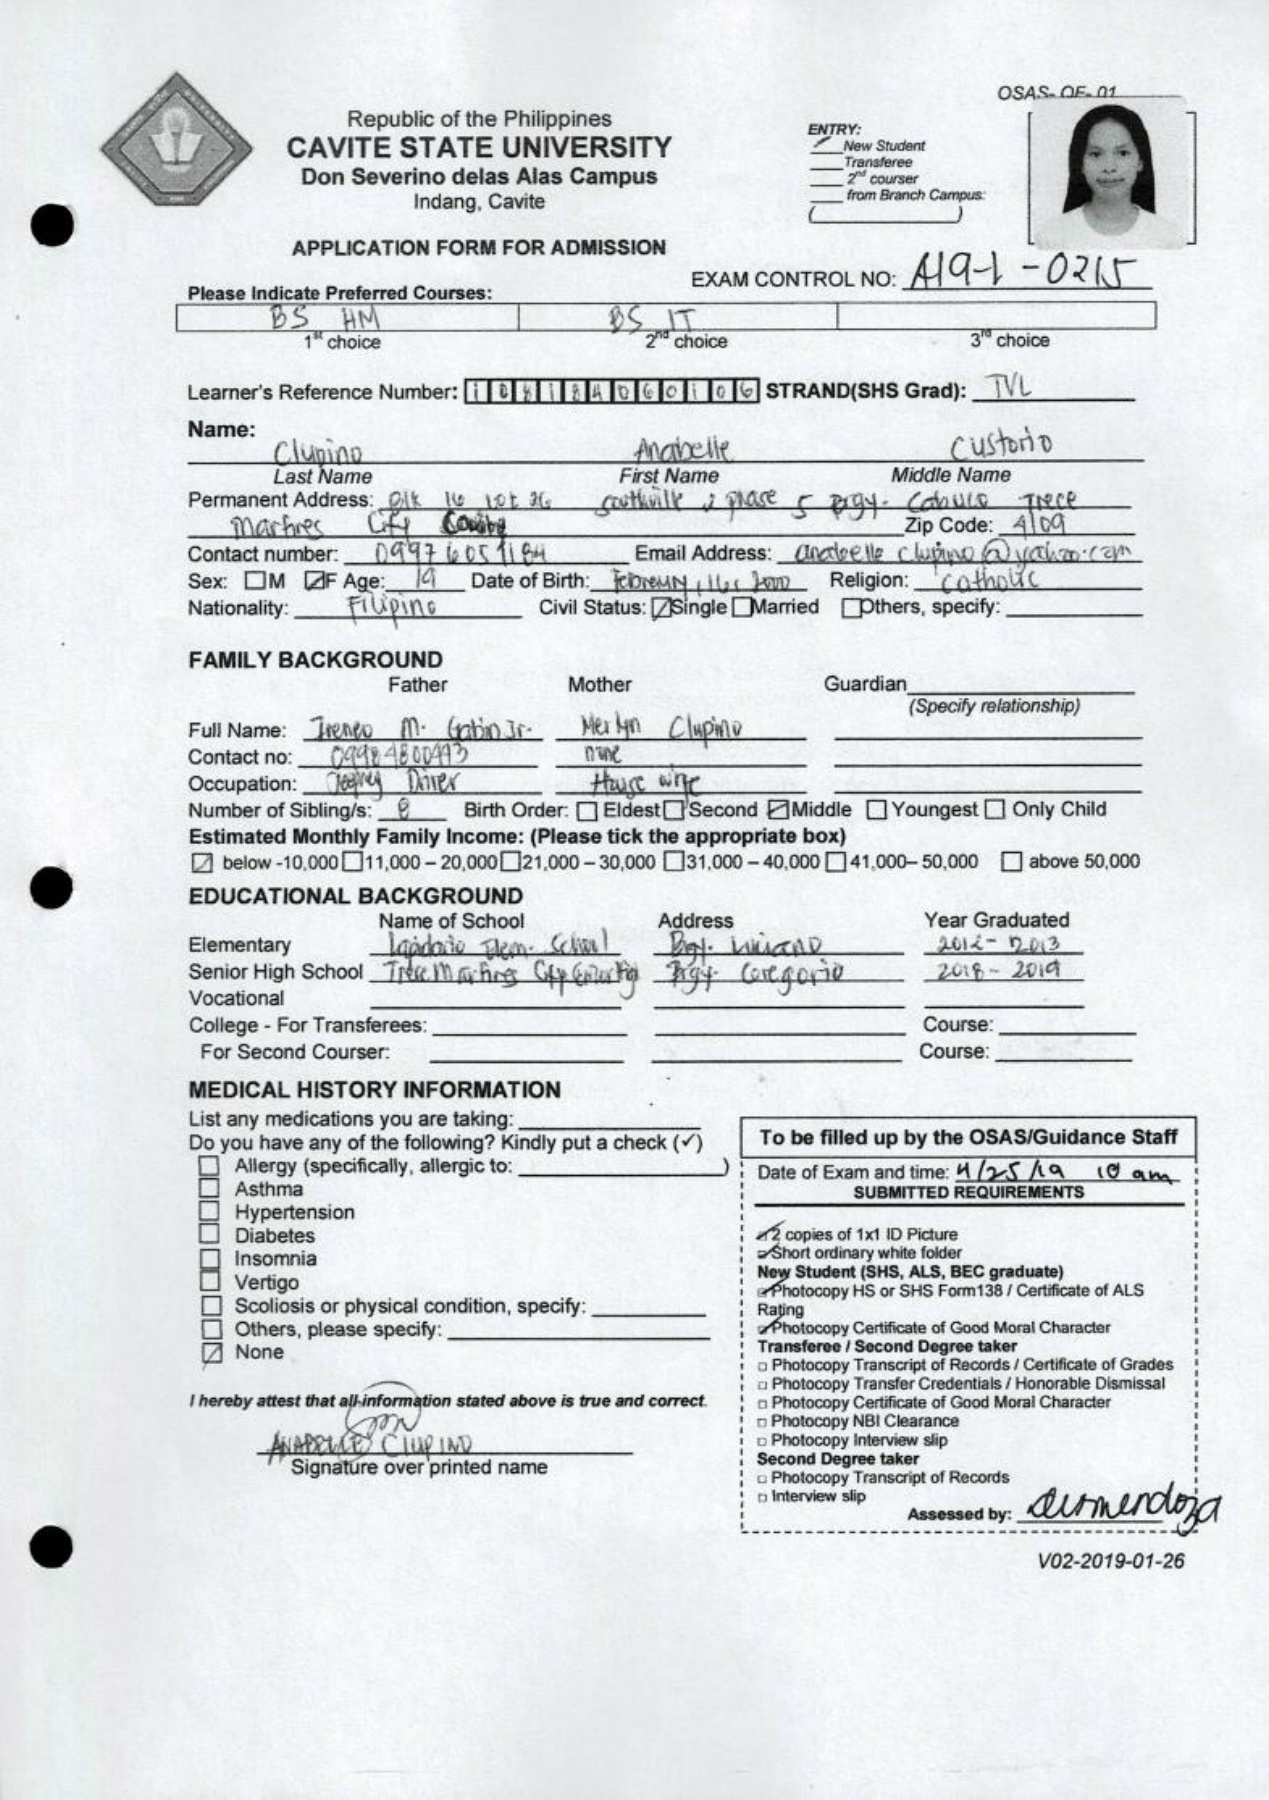 OSAS- OF- 01
Republic of the Philippines
CAVITE STATE UNIVERSITY
Don Severino delas Alas Campus
Indang, Cavite
ENTRY:
New Student
Transferee
2nd courser
from Branch Campus:
APPLICATION FORM FOR ADMISSION
EXAM CONTROL NO: A19-1-0215
Please Indicate Preferred Courses:
BS HM BS IT
1st choice 2nd choice 3rd choice
Learner's Reference Number: STRAND(SHS Grad): TVL
Name:
Clupino Anabelle Custorio
Last Name First Name Middle Name
Permanent Address: Blk 16 lot 26 Southville 2 phase 5 Brgy. Cabuco Trece
Martires City Cavite Zip Code: 4109
Contact number: Email Address: anabelle clupino@yahoo.com
Sex: M F Age: 19 Date of Birth: February, 16, 2000 Religion: Catholic
Nationality: Filipino Civil Status: Single Married Others, specify:
FAMILY BACKGROUND
Father Mother Guardian
(Specify relationship)
Full Name: Ireneo M. Gabin Jr. Merlyn Clupino
Contact no: none
Occupation: Driver House wife
Number of Sibling/s: 8 Birth Order: Eldest Second Middle Youngest Only Child
Estimated Monthly Family Income: (Please tick the appropriate box)
below -10,000 11,000 – 20,000 21,000 – 30,000 31,000 – 40,000 41,000– 50,000 above 50,000
EDUCATIONAL BACKGROUND
Name of School Address Year Graduated
Elementary Lapidario Elem. School Brgy. Luciano 2012- 2013
Senior High School Trece Martires City Brgy. Goregorio 2018 - 2019
Vocational
College - For Transferees: Course:
For Second Courser: Course:
MEDICAL HISTORY INFORMATION
List any medications you are taking:
Do you have any of the following? Kindly put a check (✓)
Allergy (specifically, allergic to: )
Asthma
Hypertension
Diabetes
Insomnia
Vertigo
Scoliosis or physical condition, specify:
Others, please specify:
None
I hereby attest that all information stated above is true and correct.
ANABELLE CLUPINO
Signature over printed name
To be filled up by the OSAS/Guidance Staff
Date of Exam and time: 4/25/19 10 am
SUBMITTED REQUIREMENTS
2 copies of 1x1 ID Picture
Short ordinary white folder
New Student (SHS, ALS, BEC graduate)
Photocopy HS or SHS Form138 / Certificate of ALS
Rating
Photocopy Certificate of Good Moral Character
Transferee / Second Degree taker
Photocopy Transcript of Records / Certificate of Grades
Photocopy Transfer Credentials / Honorable Dismissal
Photocopy Certificate of Good Moral Character
Photocopy NBI Clearance
Photocopy Interview slip
Second Degree taker
Photocopy Transcript of Records
Interview slip
Assessed by:
V02-2019-01-26